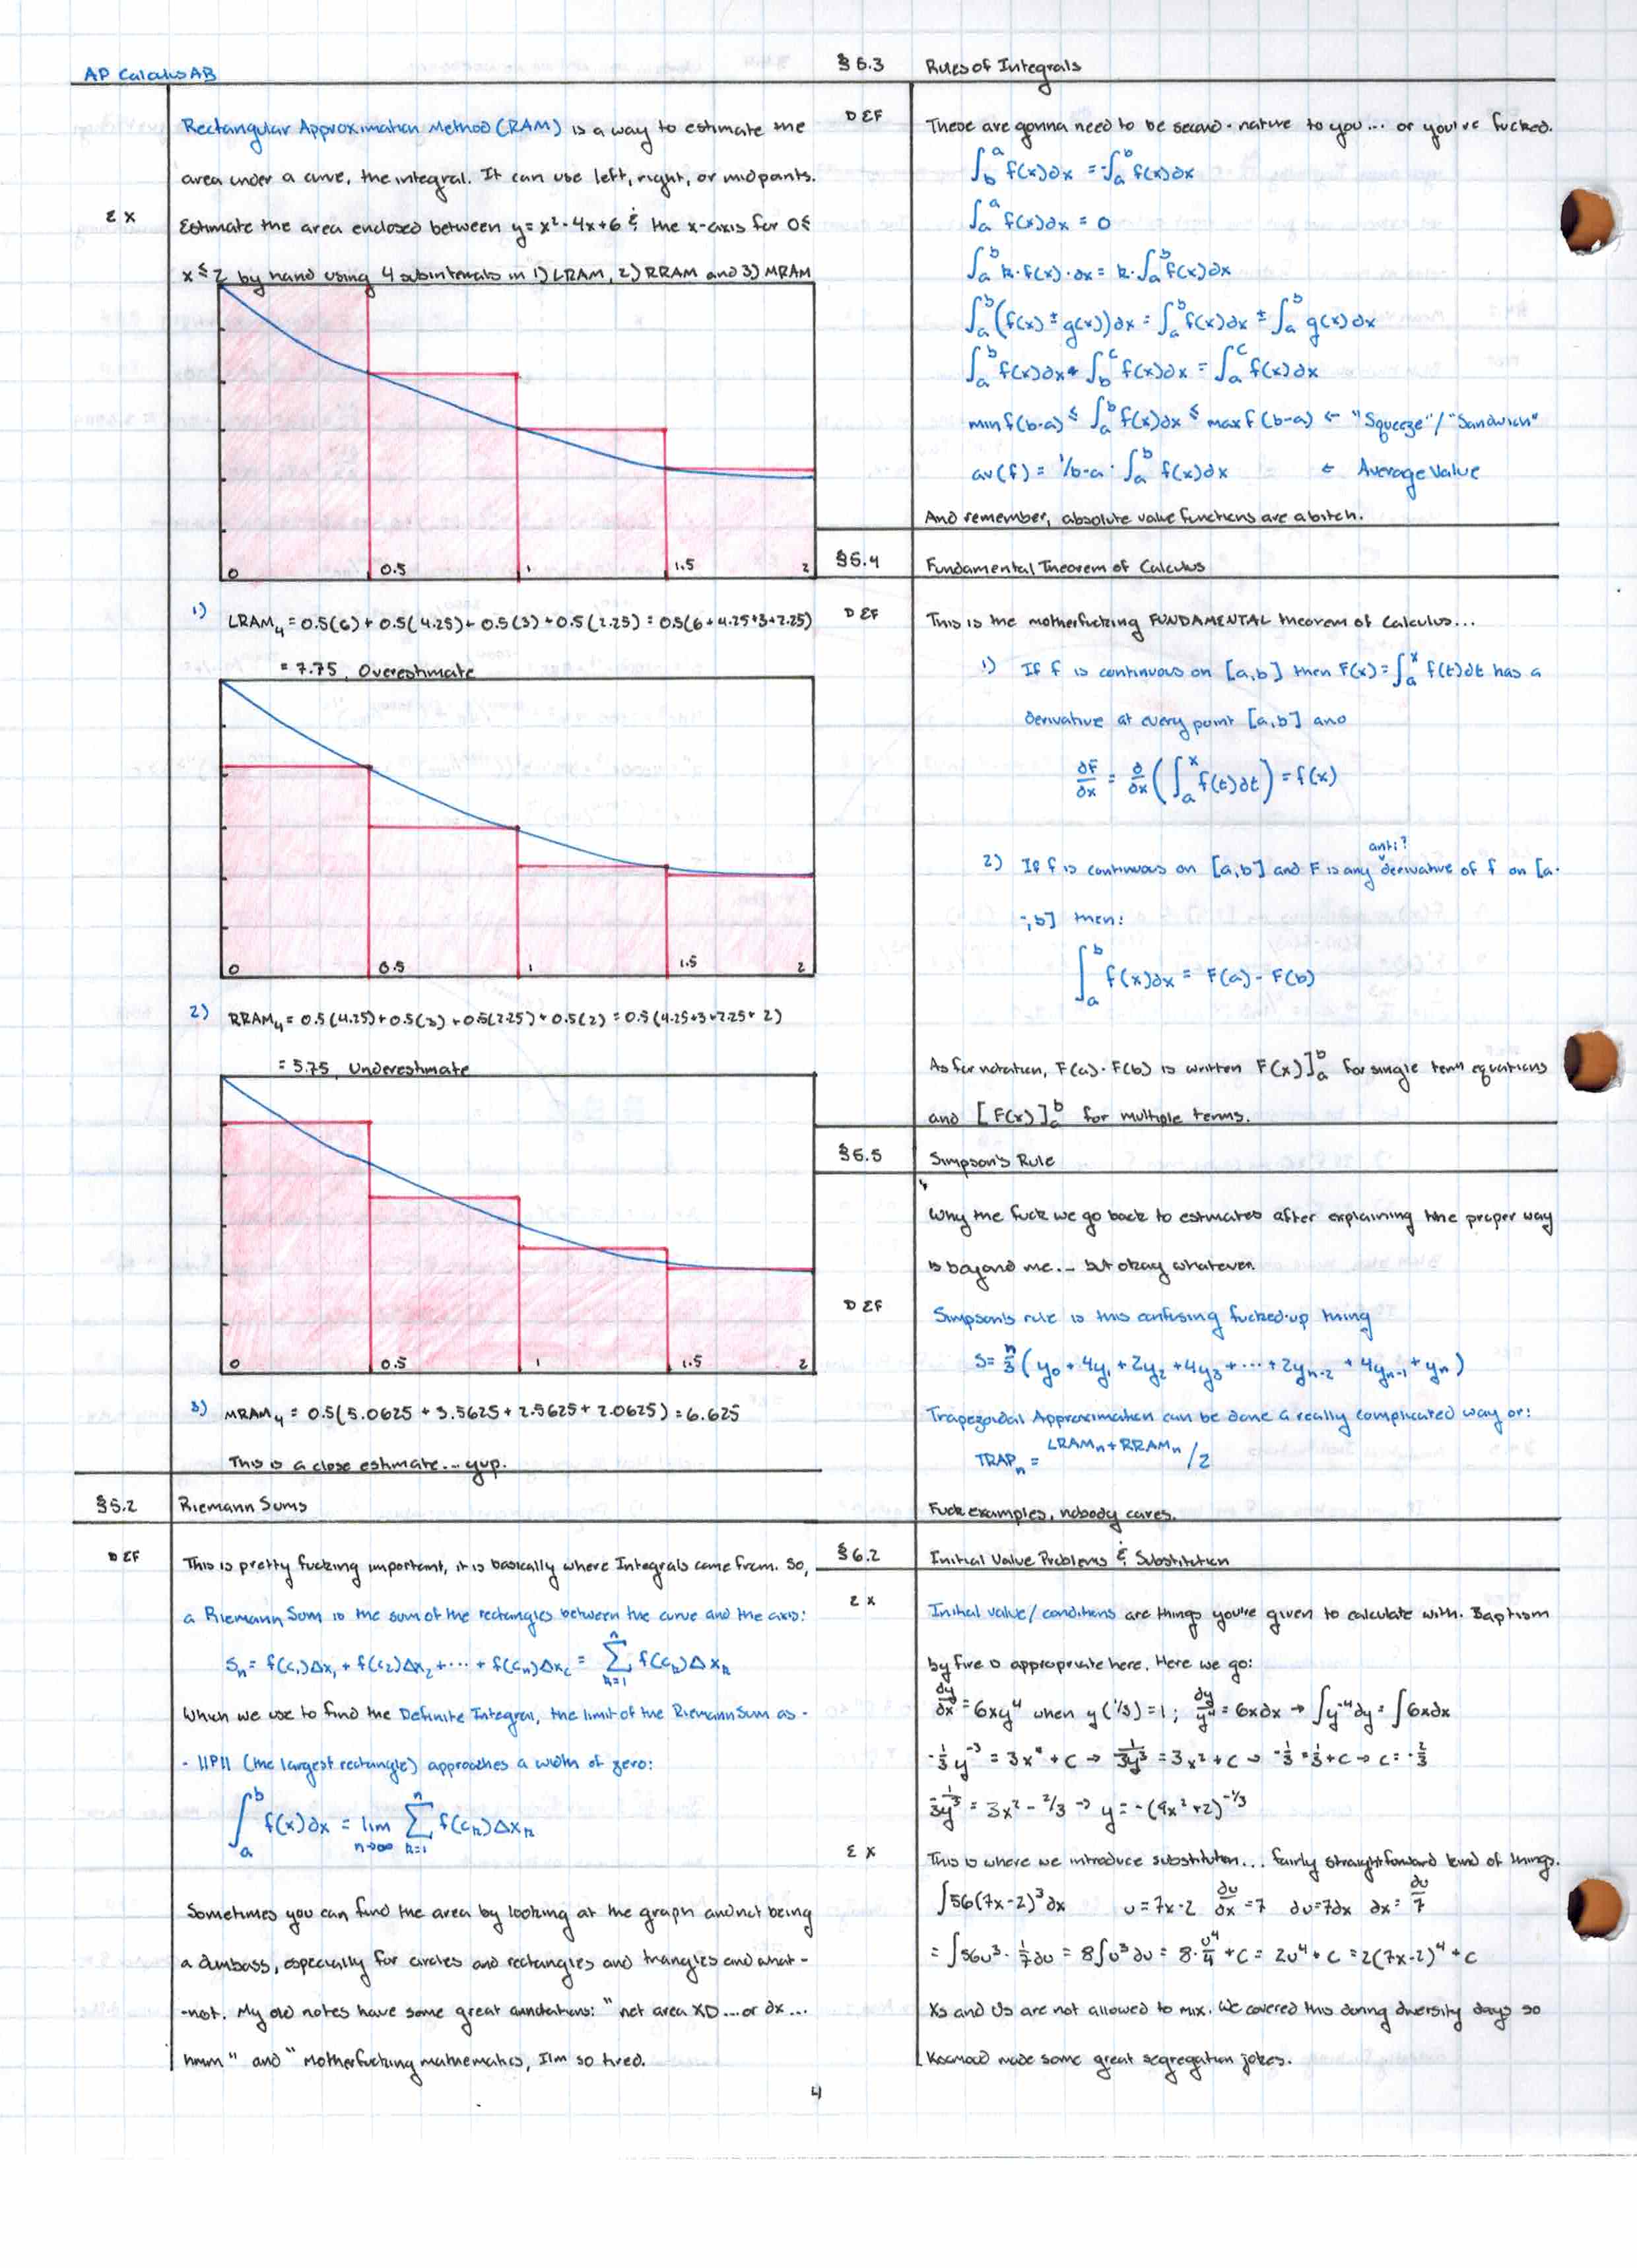 AP Calculus AB
Rectangular Approximation Method (RAM) is a way to estimate the
area under a curve, the integral. It can use left, right, or midpoints.
EX
Estimate the area enclosed between y = x² - 4x + 6 & the x-axis for 0 ≤
x ≤ 2 by hand using 4 subintervals in 1) LRAM, 2) RRAM and 3) MRAM
0 0.5 1 1.5 2
1) LRAM₄ = 0.5(6) + 0.5(4.25) + 0.5(3) + 0.5(2.25) = 0.5(6+4.25+3+2.25)
= 7.75, Overestimate
0 0.5 1 1.5 2
2) RRAM₄ = 0.5(4.25) + 0.5(3) + 0.5(2.25) + 0.5(2) = 0.5(4.25+3+2.25+2)
= 5.75, Underestimate
0 0.5 1 1.5 2
3) MRAM₄ = 0.5(5.0625 + 3.5625 + 2.5625 + 2.0625) = 6.625
This is a close estimate... yup.
§5.2 Riemann Sums
DEF
This is pretty fucking important, it is basically where Integrals came from. So,
a Riemann Sum is the sum of the rectangles between the curve and the axis:
Sₙ = f(c₁)Δx₁ + f(c₂)Δx₂ + ··· + f(cₙ)Δx = Σ f(cₖ)Δxₖ n k=1
Which we use to find the Definite Integral, the limit of the Riemann Sum as -
- ||P|| (the largest rectangle) approaches a width of zero:
∫ₐᵇ f(x)∂x = lim n→∞ Σ n k=1 f(cₖ)Δxₖ
Sometimes you can find the area by looking at the graph and not being
a dumbass, especially for circles and rectangles and triangles and what-
-not. My old notes have some great annotations: "net area XD... or ∂x...
hmm" and "Motherfucking mathematics, I'm so tired.
§5.3 Rules of Integrals
DEF
These are gonna need to be second-nature to you... or you're fucked.
∫_b^a f(x)∂x = -∫_a^b f(x)∂x
∫_a^a f(x)∂x = 0
∫_a^b k·f(x)·∂x = k·∫_a^b f(x)∂x
∫_a^b (f(x) ± g(x))∂x = ∫_a^b f(x)∂x ± ∫_a^b g(x)∂x
∫_a^b f(x)∂x + ∫_b^c f(x)∂x = ∫_a^c f(x)∂x
min f(b-a) ≤ ∫_a^b f(x)∂x ≤ max f(b-a) ← "Squeeze"/"Sandwich"
av(f) = 1/b-a · ∫_a^b f(x)∂x ← Average Value
And remember, absolute value functions are a bitch.
§5.4 Fundamental Theorem of Calculus
DEF
This is the motherfucking FUNDAMENTAL theorem of Calculus...
1) If f is continuous on [a,b] then F(x) = ∫_a^x f(t)∂t has a
derivative at every point [a,b] and
∂F/∂x = ∂/∂x (∫_a^x f(t)∂t) = f(x)
anti?
2) If f is continuous on [a,b] and F is any derivative of f on [a-
-,b] then:
∫_a^b f(x)∂x = F(a) - F(b)
As for notation, F(a) - F(b) is written F(x)]_a^b for single term equations
and [F(x)]_a^b for multiple terms.
§5.5 Simpson's Rule
Why the fuck we go back to estimates after explaining the proper way
is beyond me... but okay whatever.
DEF
Simpson's rule is this confusing fucked-up thing
S = h/3 (y₀ + 4y₁ + 2y₂ + 4y₃ + ··· + 2yₙ₋₂ + 4yₙ₋₁ + yₙ)
Trapezoidal Approximation can be done a really complicated way or:
TRAPₙ = LRAMₙ + RRAMₙ / 2
Fuck examples, nobody cares.
§6.2 Initial Value Problems & Substitution
EX
Initial value/conditions are things you're given to calculate with. Baptism
by fire is appropriate here. Here we go:
∂y/∂x = 6xy⁴ when y(1/3) = 1; ∂y/y⁴ = 6x∂x → ∫y⁻⁴∂y = ∫6x∂x
-1/3 y⁻³ = 3x² + C → 1/3y³ = 3x² + C → -1/3 = 1/3 + C → C = -2/3
-1/3y³ = 3x² - 2/3 → y = -(9x²+2)^-1/3
EX
This is where we introduce substitution... fairly straightforward kind of things.
∫56(7x-2)³∂x u = 7x-2 ∂u/∂x = 7 ∂u = 7∂x ∂x = ∂u/7
= ∫56u³ · 1/7 ∂u = 8∫u³∂u = 8·u⁴/4 + C = 2u⁴ + C = 2(7x-2)⁴ + C
Xs and Us are not allowed to mix. We covered this during diversity days so
made some great segregation jokes.
4